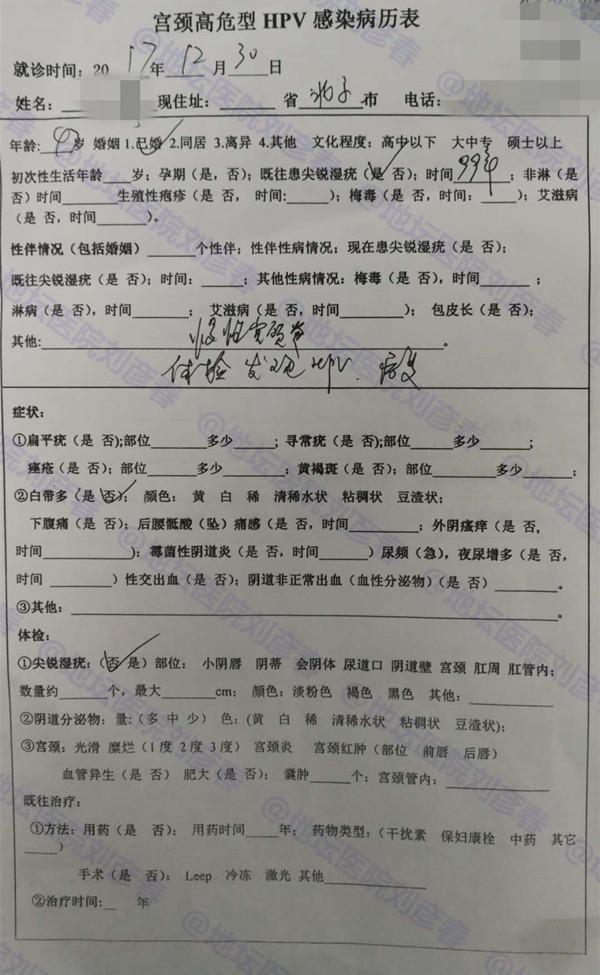 宫颈高危型 HPV 感染病历表
就诊时间：20 17 年 12 月 30 日
姓名：______ 现住址：______ 省______市 电话：
年龄：____岁 婚姻 1.已婚 2.同居 3.离异 4.其他 文化程度：高中以下 大中专 硕士以上
初次性生活年龄____岁；孕期（是，否）；既往患尖锐湿疣（是 否）；时间 99年；非淋（是
否）时间______生殖性疱疹（是 否， 时间：_____）；梅毒（是 否，时间：_____）；艾滋病
（是 否，时间______）。
性伴情况（包括婚姻）______个性伴；性伴性病情况：现在患尖锐湿疣（是 否）；
既往尖锐湿疣（是 否）；时间：_____； 其他性病情况：梅毒（是 否），时间______ ；
淋病（是 否），时间______； 艾滋病（是 否，时间_______）； 包皮长（是 否）；
其他：
体检 发现 HPV. 病变
症状：
①扁平疣（是 否）；部位______多少_____； 寻常疣（是 否）；部位_____多少_____；
痤疮（是 否）；部位_____多少______；黄褐斑（是 否）；部位______多少______；
②白带多（是 否）； 颜色： 黄 白 稀 清稀水状 粘稠状 豆渣状；
下腹痛（是 否）；后腰骶酸（坠）痛感（是 否，时间________；外阴瘙痒（是 否，
时间__________）；霉菌性阴道炎（是 否，时间______）尿频（急），夜尿增多（是 否，
时间 _______）性交出血（是 否）；阴道非正常出血（血性分泌物）（是 否）_______。
③其他：______。
体检：
①尖锐湿疣：（否 是）部位： 小阴唇 阴蒂 会阴体 尿道口 阴道壁 宫颈 肛周 肛管内；
数量约______个，最大______cm； 颜色：淡粉色 褐色 黑色 其他：________
②阴道分泌物：量：（多 中 少） 色：（黄 白 稀 清稀水状 粘稠状 豆渣状）；
③宫颈：光滑 糜烂（1度 2度 3度） 宫颈炎 宫颈红肿（部位 前唇 后唇）
血管异生（是 否） 肥大（是 否）； 囊肿_____个；宫颈管内：__________
既往治疗：
①方法：用药（是 否）； 用药时间____年； 药物类型：（干扰素 保妇康栓 中药 其它
____）
手术（是 否）： Leep 冷冻 激光 其他__________
②治疗时间：__ 年
@地坛医院刘彦春